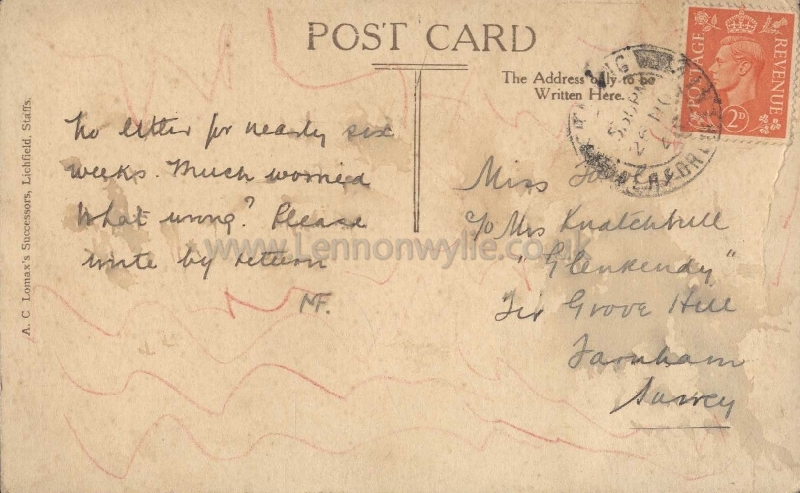 POST CARD
The Address only to be
Written Here.
POSTAGE
REVENUE
2D
No letter for nearly six
weeks. Much worried
What wrong? Please
write by return
MF.
Miss
c/o Mrs Knatchbull
"Glenkendy"
Fir Grove Hill
Farnham
Surrey
A. C Lomax's Successors, Lichfield, Staffs.
www.Lennonwylie.co.uk